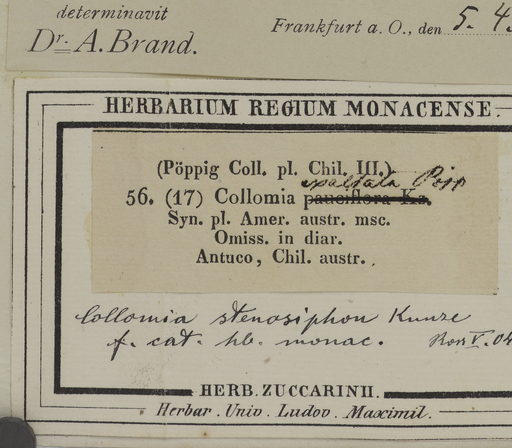 determinavit
Dr. A. Brand.
Frankfurt a. O., den 5. 4.
HERBARIUM REGIUM MONACENSE.
(Pöppig Coll. pl. Chil. III.)
56. (17) Collomia pauciflora Kz.
Syn. pl. Amer. austr. msc.
Omiss. in diar.
Antuco, Chil. austr.
Collomia stenosiphon Kunze
f. cat. hb. monac. V. 04
HERB. ZUCCARINII.
Herbar. Univ. Ludov. Maximil.